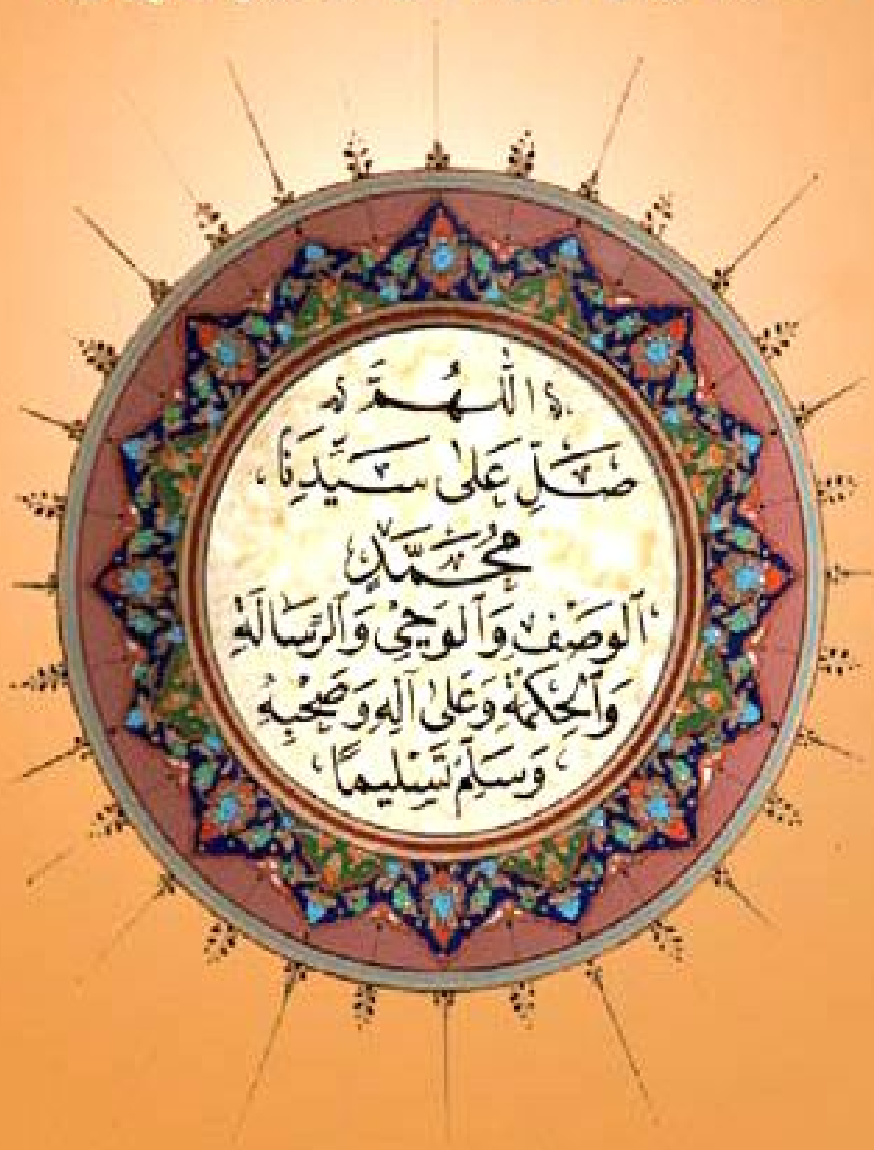 اللَّهُمَّ
صَلِّ عَلَىٰ سَيِّدِنَا
مُحَمَّدٍ
ٱلْوَصْفِ وَٱلْوَحْيِ وَٱلرِّسَالَةِ
وَٱلْحِكْمَةِ وَعَلَىٰ آلِهِ وَصَحْبِهِ
وَسَلِّمْ تَسْلِيمًا